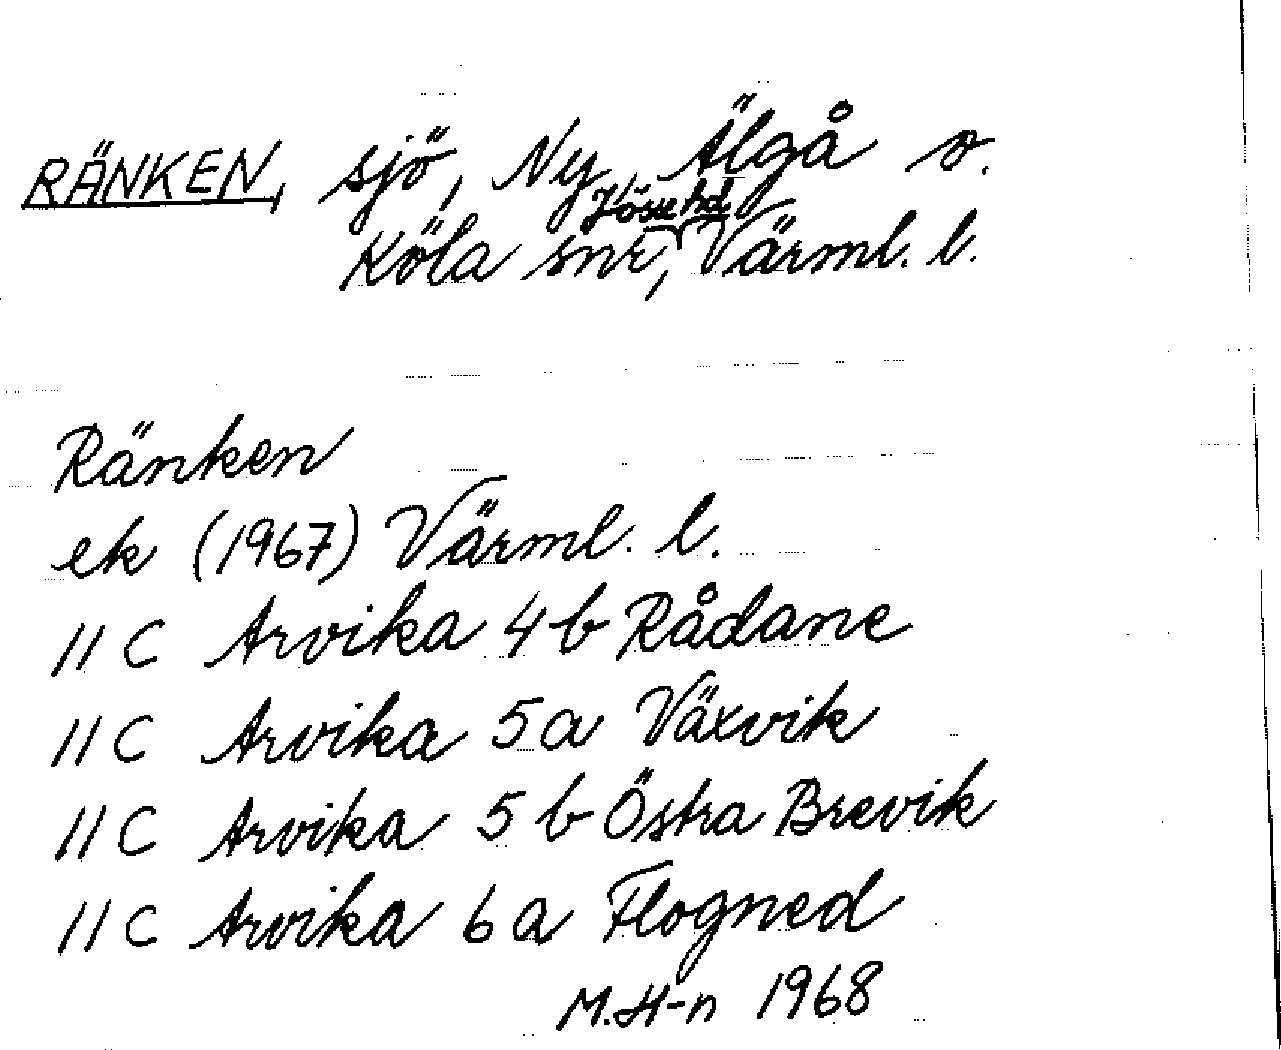 RÄNKEN, sjö, Ny, Älgå o.
Jösse hd,
Köla snr, Värml. l.
Ränken
ek (1967) Värml. l.
11 C Arvika 4 b Rådane
11 C Arvika 5 a Växvik
11 C Arvika 5 b Östra Brevik
11 C Arvika 6 a Flogned
M.H-n 1968